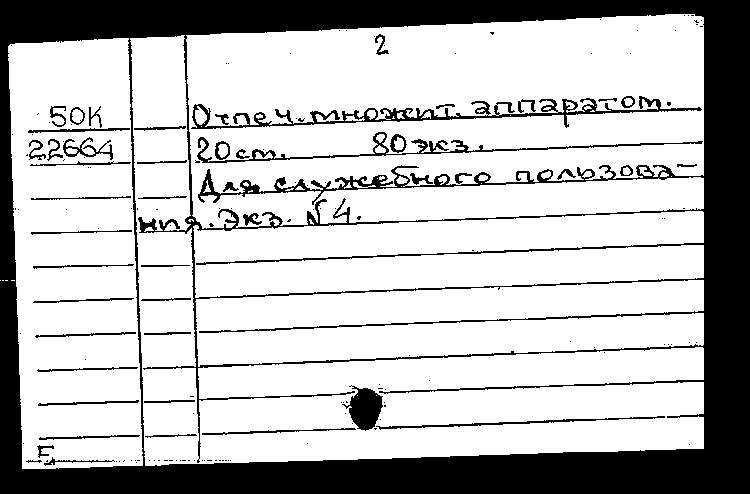 2
50К Отпеч. множит. аппаратом.
22664 20 ст. 80 экз.
Для служебного пользова-
ния. Экз. №4.
Е